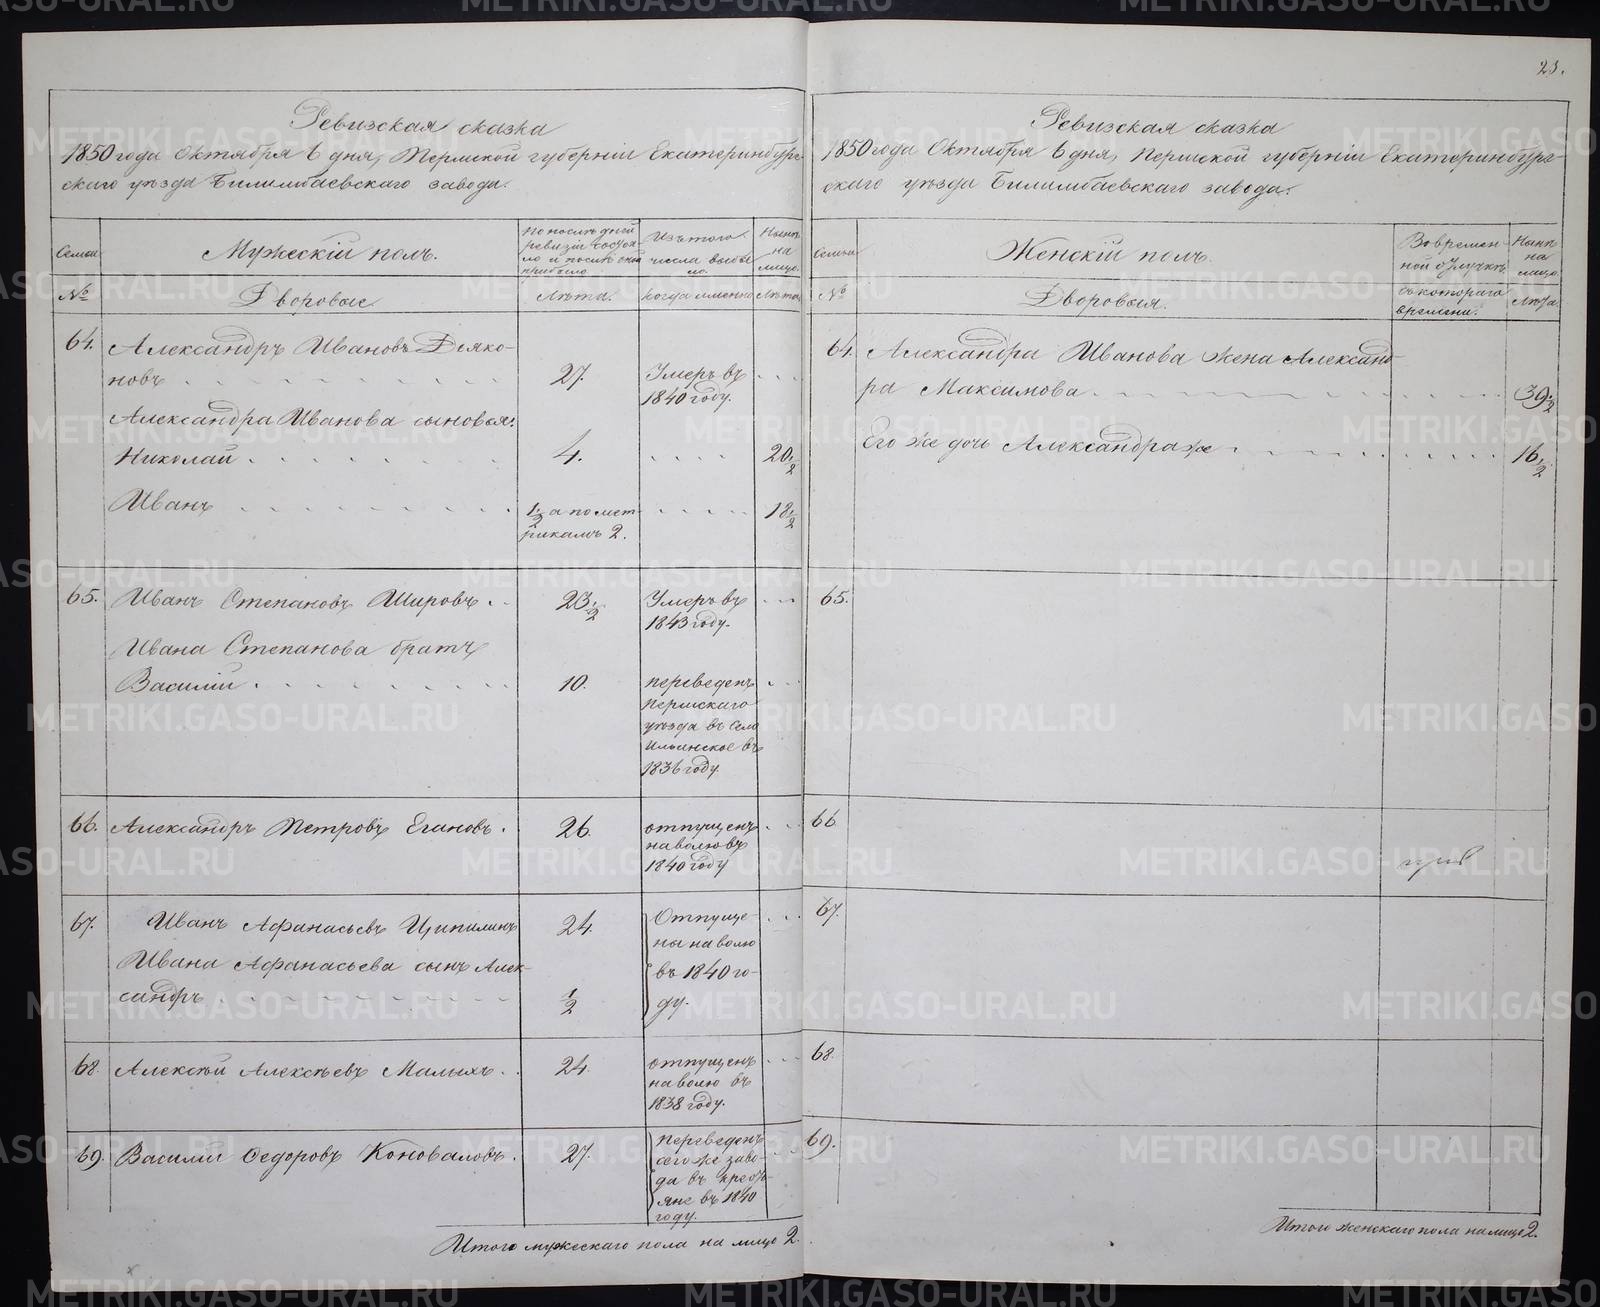 23.
Ревизская сказка
1850 года Октября 6 дня, Пермской губернiи Екатеринбург-
скаго уѣзда Билимбаевскаго завода.
Семьи
Мужескiй полъ.
По послѣдней
ревизiи состоя-
ло и послѣ оной
прибыло
Изъ того
числа выбы
ло.
Нынѣ
на
лицо.
№
Дворовые
Лѣта.
когда именно
Лѣта.
64.
Александръ Ивановъ Дьяко-
новъ
27.
Умеръ въ
1840 году.
Александра Иванова сыновья:
Николай
4.
20 1/2
Иванъ
1/2 а по мет-
рикамъ 2.
18 1/2
65.
Иванъ Степановъ Шировъ.
23 1/2
Умеръ въ
1843 году.
Ивана Степанова братъ
Василiй
10.
переведенъ
Пермскаго
уѣзда въ село
Ильинское въ
1836 году.
66.
Александръ Петровъ Егановъ.
26.
отпущенъ
на волю въ
1840 году
67.
Иванъ Афанасьевъ Ципилинъ
24.
Отпуще-
ны на волю
въ 1840 го-
ду.
Ивана Афанасьева сынъ Алек-
сандръ
1/2
68.
Алексѣй Алексѣевъ Малыхъ.
24.
отпущенъ
на волю въ
1838 году.
69.
Василiй Ѳедоровъ Коноваловъ.
27.
Переведенъ
сего же заво-
да въ кресть-
яне въ 1840
году.
Итого мужескаго пола на лицо 2.
Ревизская сказка
1850 года Октября 6 дня, Пермской губернiи Екатеринбург-
скаго уѣзда Билимбаевскаго завода.
Семьи
Женскiй полъ.
Во времен-
ной отлучкѣ
Нынѣ
на
лицо.
№
Дворовыя.
съ котораго
времени.
Лѣта.
64.
Александра Иванова жена Александ-
ра Максимова
39 1/2
Его же дочь Александра же
16 1/2
65.
66
67.
68
69.
Итого женскаго пола на лицо 2.
METRIKI.GASO-URAL.RU